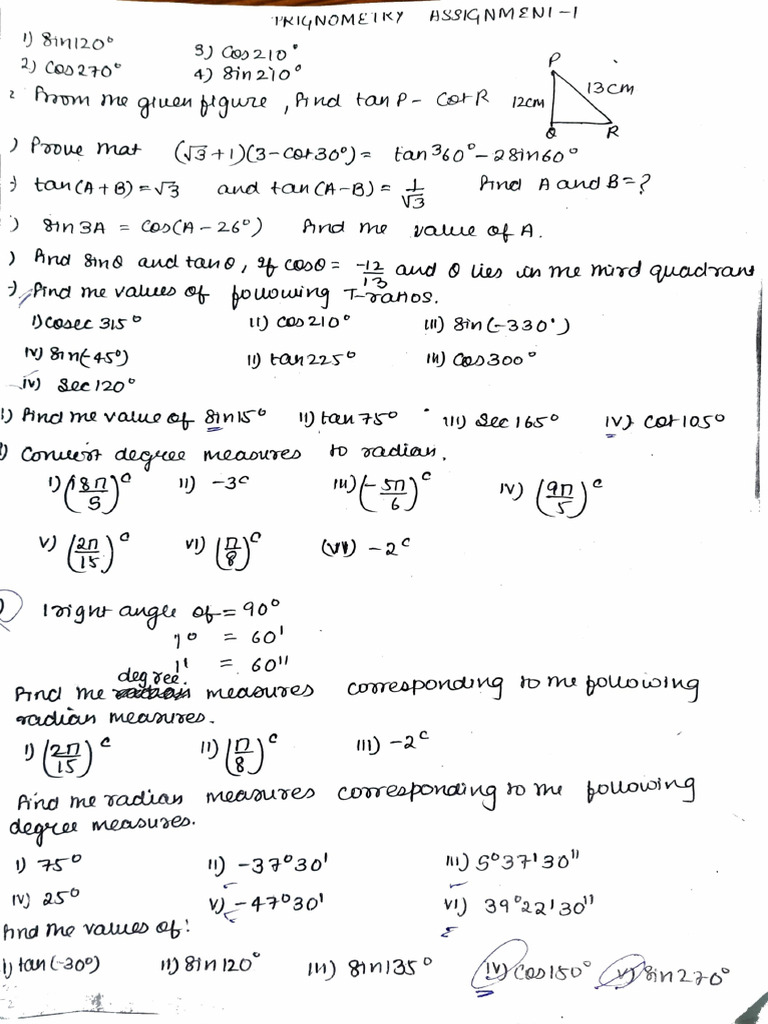 TRIGNOMETRY ASSIGNMENT-1
1) Sin120° 3) Cos210°
2) Cos270° 4) Sin210°
2 From the given figure, Find tanP - CotR
P
12cm 13cm
Q R
) Prove that (√3+1)(3-Cot30°) = tan³60° - 2Sin60°
tan(A+B) = √3 and tan(A-B) = 1/√3 Find A and B=?
) Sin3A = Cos(A-26°) Find the value of A.
) Find Sinθ and tanθ, if Cosθ = -12/13 and θ lies in the third quadrant
Find the values of following T-ratios.
I) Cosec 315° II) Cos210° III) Sin(-330°)
IV) Sin(-45°) II) tan225° III) Cos300°
IV) Sec120°
1) Find the value of Sin15° II) tan75° III) Sec165° IV) Cot105°
) Convert degree measures to radian.
I) (8π/5)ᶜ II) -3ᶜ III) (-5π/6)ᶜ IV) (9π/5)ᶜ
V) (2π/15)ᶜ VI) (π/8)ᶜ (VII) -2ᶜ
1 right angle of = 90°
1° = 60'
1' = 60''
Find the degree measures corresponding to the following
radian measures.
I) (2π/15)ᶜ II) (π/8)ᶜ III) -2ᶜ
Find the radian measures corresponding to the following
degree measures.
I) 75° II) -37°30' III) 5°37'30''
IV) 25° V) -47°30' VI) 39°22'30''
Find the values of:
I) tan(-30°) II) Sin120° III) Sin135° IV) Cos150° V) Sin270°